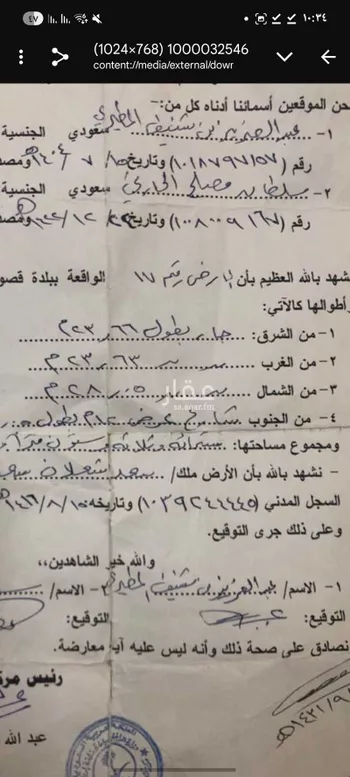 ١٠:٣٤
٤٧
1000032546 (1024×768)
content://media/external/dowr
حن الموقعين أسمائنا أدناه كل من:-
١- عبدالعزيز بن شنيف المطيري سعودي الجنسية
رقم (١٠١٨٧٩٧١٥٧) وتاريخ ١٥/ ٧ /١٤٠٤هـ ومصد
٢- سلطان مصلح الحارثي سعودي الجنسية
رقم (١٠٠٨٠٠٩١٦٧) وتاريخ /١٢/١٤٢٢هـ ومصد
شهد بالله العظيم بأن الأرض رقم ١١٧ الواقعة ببلدة قصو
أطوالها كالآتي:
١- من الشرق: جار بطول ٢٣،٦٦م
٢- من الغرب ٢٣،٦٣م
٣- من الشمال ٢٨،٠٥م
٤- من الجنوب شارع عرض بطول
ومجموع مساحتها: ستمائة وثلاثة وستون متراً
- نشهد بالله بأن الأرض ملك/ سعد
السجل المدني (١٠٣٩٢٤٤٤٤٥) وتاريخه ١٤١٦/٨/١٥هـ
وعلى ذلك جرى التوقيع.
والله خير الشاهدين،،
١- الاسم/ عبدالعزيز بن شنيف المطيري ٢- الاسم/
التوقيع: التوقيع:
نصادق على صحة ذلك وأنه ليس عليه أية معارضة.
رئيس مرك
عبد الله
عقار
sa.aqar.fm